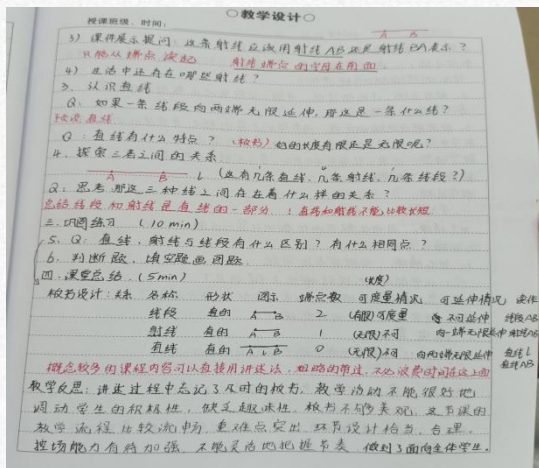 ○教学设计○
授课班级、时间:
A B
3) 课件展示提问:这条射线应该用射线AB还是射线BA表示?
只能从端点读起 射线端点的字母在前面
4) 生活中还存在哪些射线?
3. 认识直线
Q: 如果一条线段向两端无限延伸,那这是一条什么线?
Q: 直线有什么特点?(板书) 它的长度有限还是无限呢?
4. 探索三者之间的关系
A B l (这有几条直线、几条射线、几条线段?)
Q: 思考那这三种线之间存在着什么样的关系?
总结线段和射线是直线的一部分 !直线和射线不能比较长短
三. 巩固练习 (10min)
5. Q: 直线、射线与线段有什么区别?有什么相同点?
6. 判断题、填空题、画图题
四. 课堂总结 (5min) (长度)
板书设计: 关系 名称 形状 图示 端点数 可度量情况 可延伸情况 读作
线段 直的 A B 2 (有限)可度量 不可延伸 线段AB
射线 直的 A B 1 (无限)不可 向一端无限延伸 射线AB
直线 直的 A l B 0 (无限)不可 向两端无限延伸 直线l
直线AB
概念较多的课程内容可以直接用讲述法,粗略的带过,不必浪费时间在这上面
教学反思: 讲述过程中忘记了及时的板书,教学活动不能很好地
调动学生的积极性,缺乏趣味性,板书不够美观,这节课的
教学流程比较流畅,重难点突出,环节设计恰当、合理。
控场能力有待加强,不能灵活地把握节奏,做到了面向全体学生。